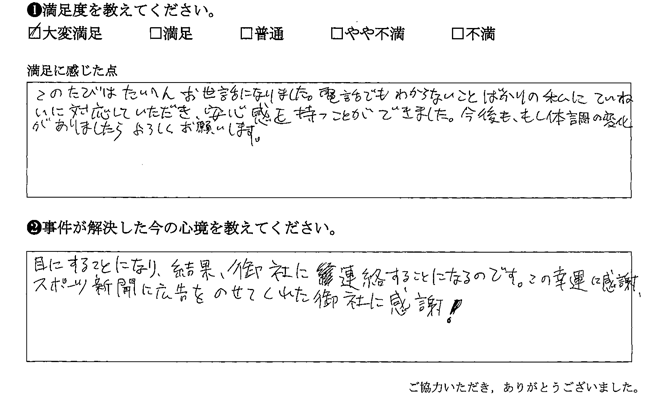 ❶満足度を教えてください。
☑大変満足 □満足 □普通 □やや不満 □不満
満足に感じた点
このたびは たいへん お世話になりました。電話でも わからないことばかりの 私に ていね
いに対応していただき、安心感を持つことができました。今後も、もし体調の変化
がありましたら よろしく お願いします。
❷事件が解決した今の心境を教えてください。
目にすることになり、結果、御社に連絡することになるのです。この幸運に感謝、
スポーツ新聞に広告を のせてくれた 御社に感謝!
ご協力いただき，ありがとうございました。